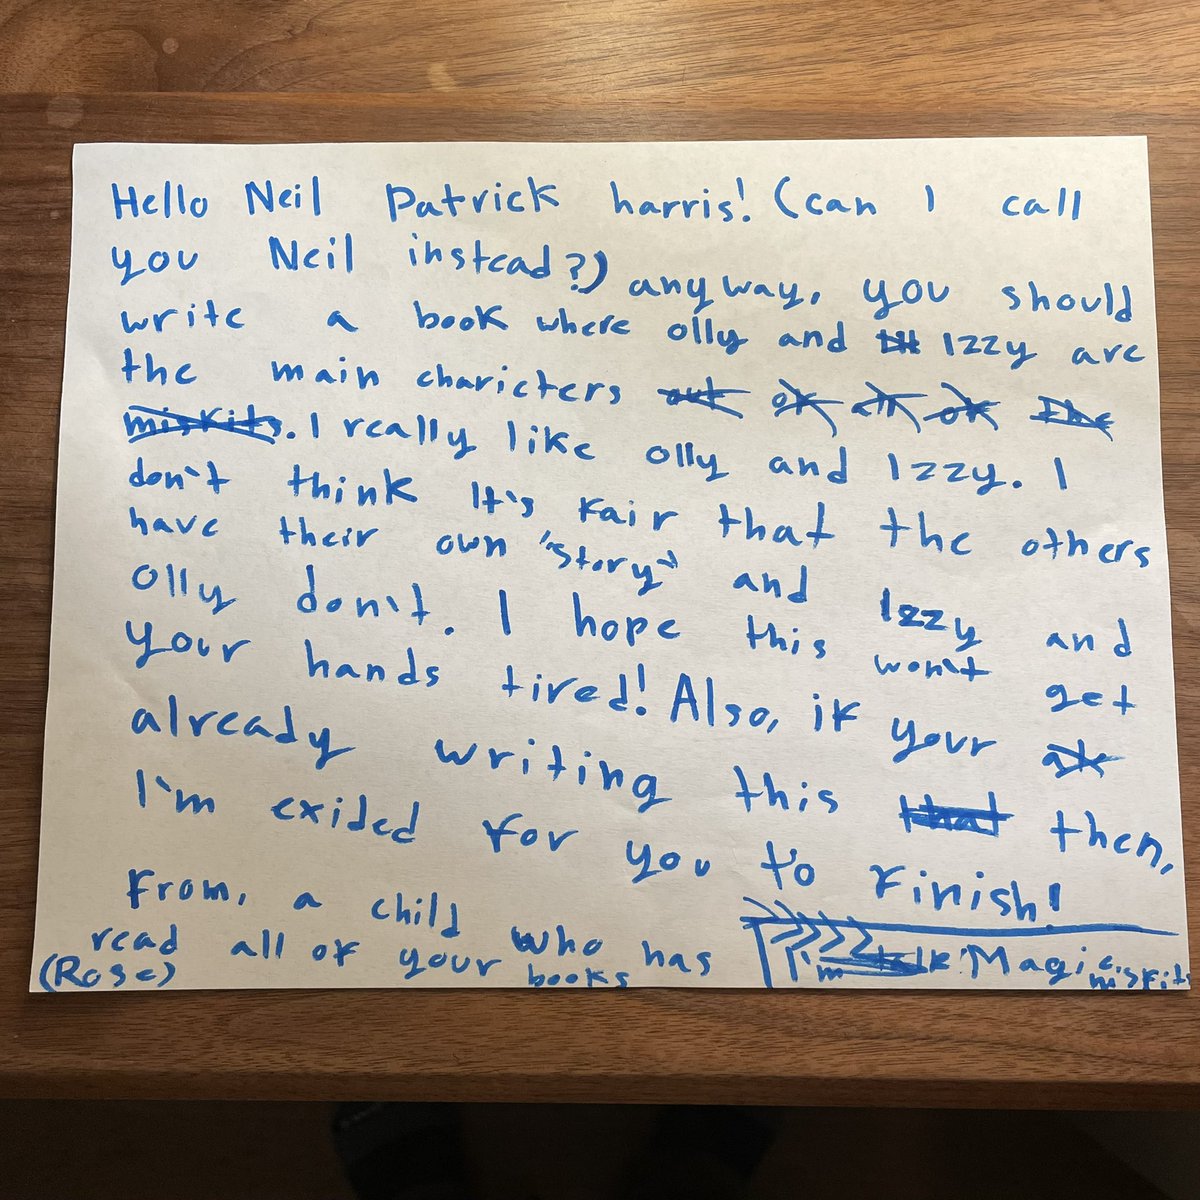 Hello Neil Patrick harris! (can I call
you Neil instead?) anyway, you should
write a book where olly and Izzy are
the main charicters out of all of the
miskits. I really like olly and Izzy. I
don't think It's fair that the others
have their own "story" and Izzy and
olly don't. I hope this won't get
your hands tired! Also, if your
already writing this that then,
I'm exided for you to finish!
From, a child who has
read all of your books
(Rose)
Magic miskits